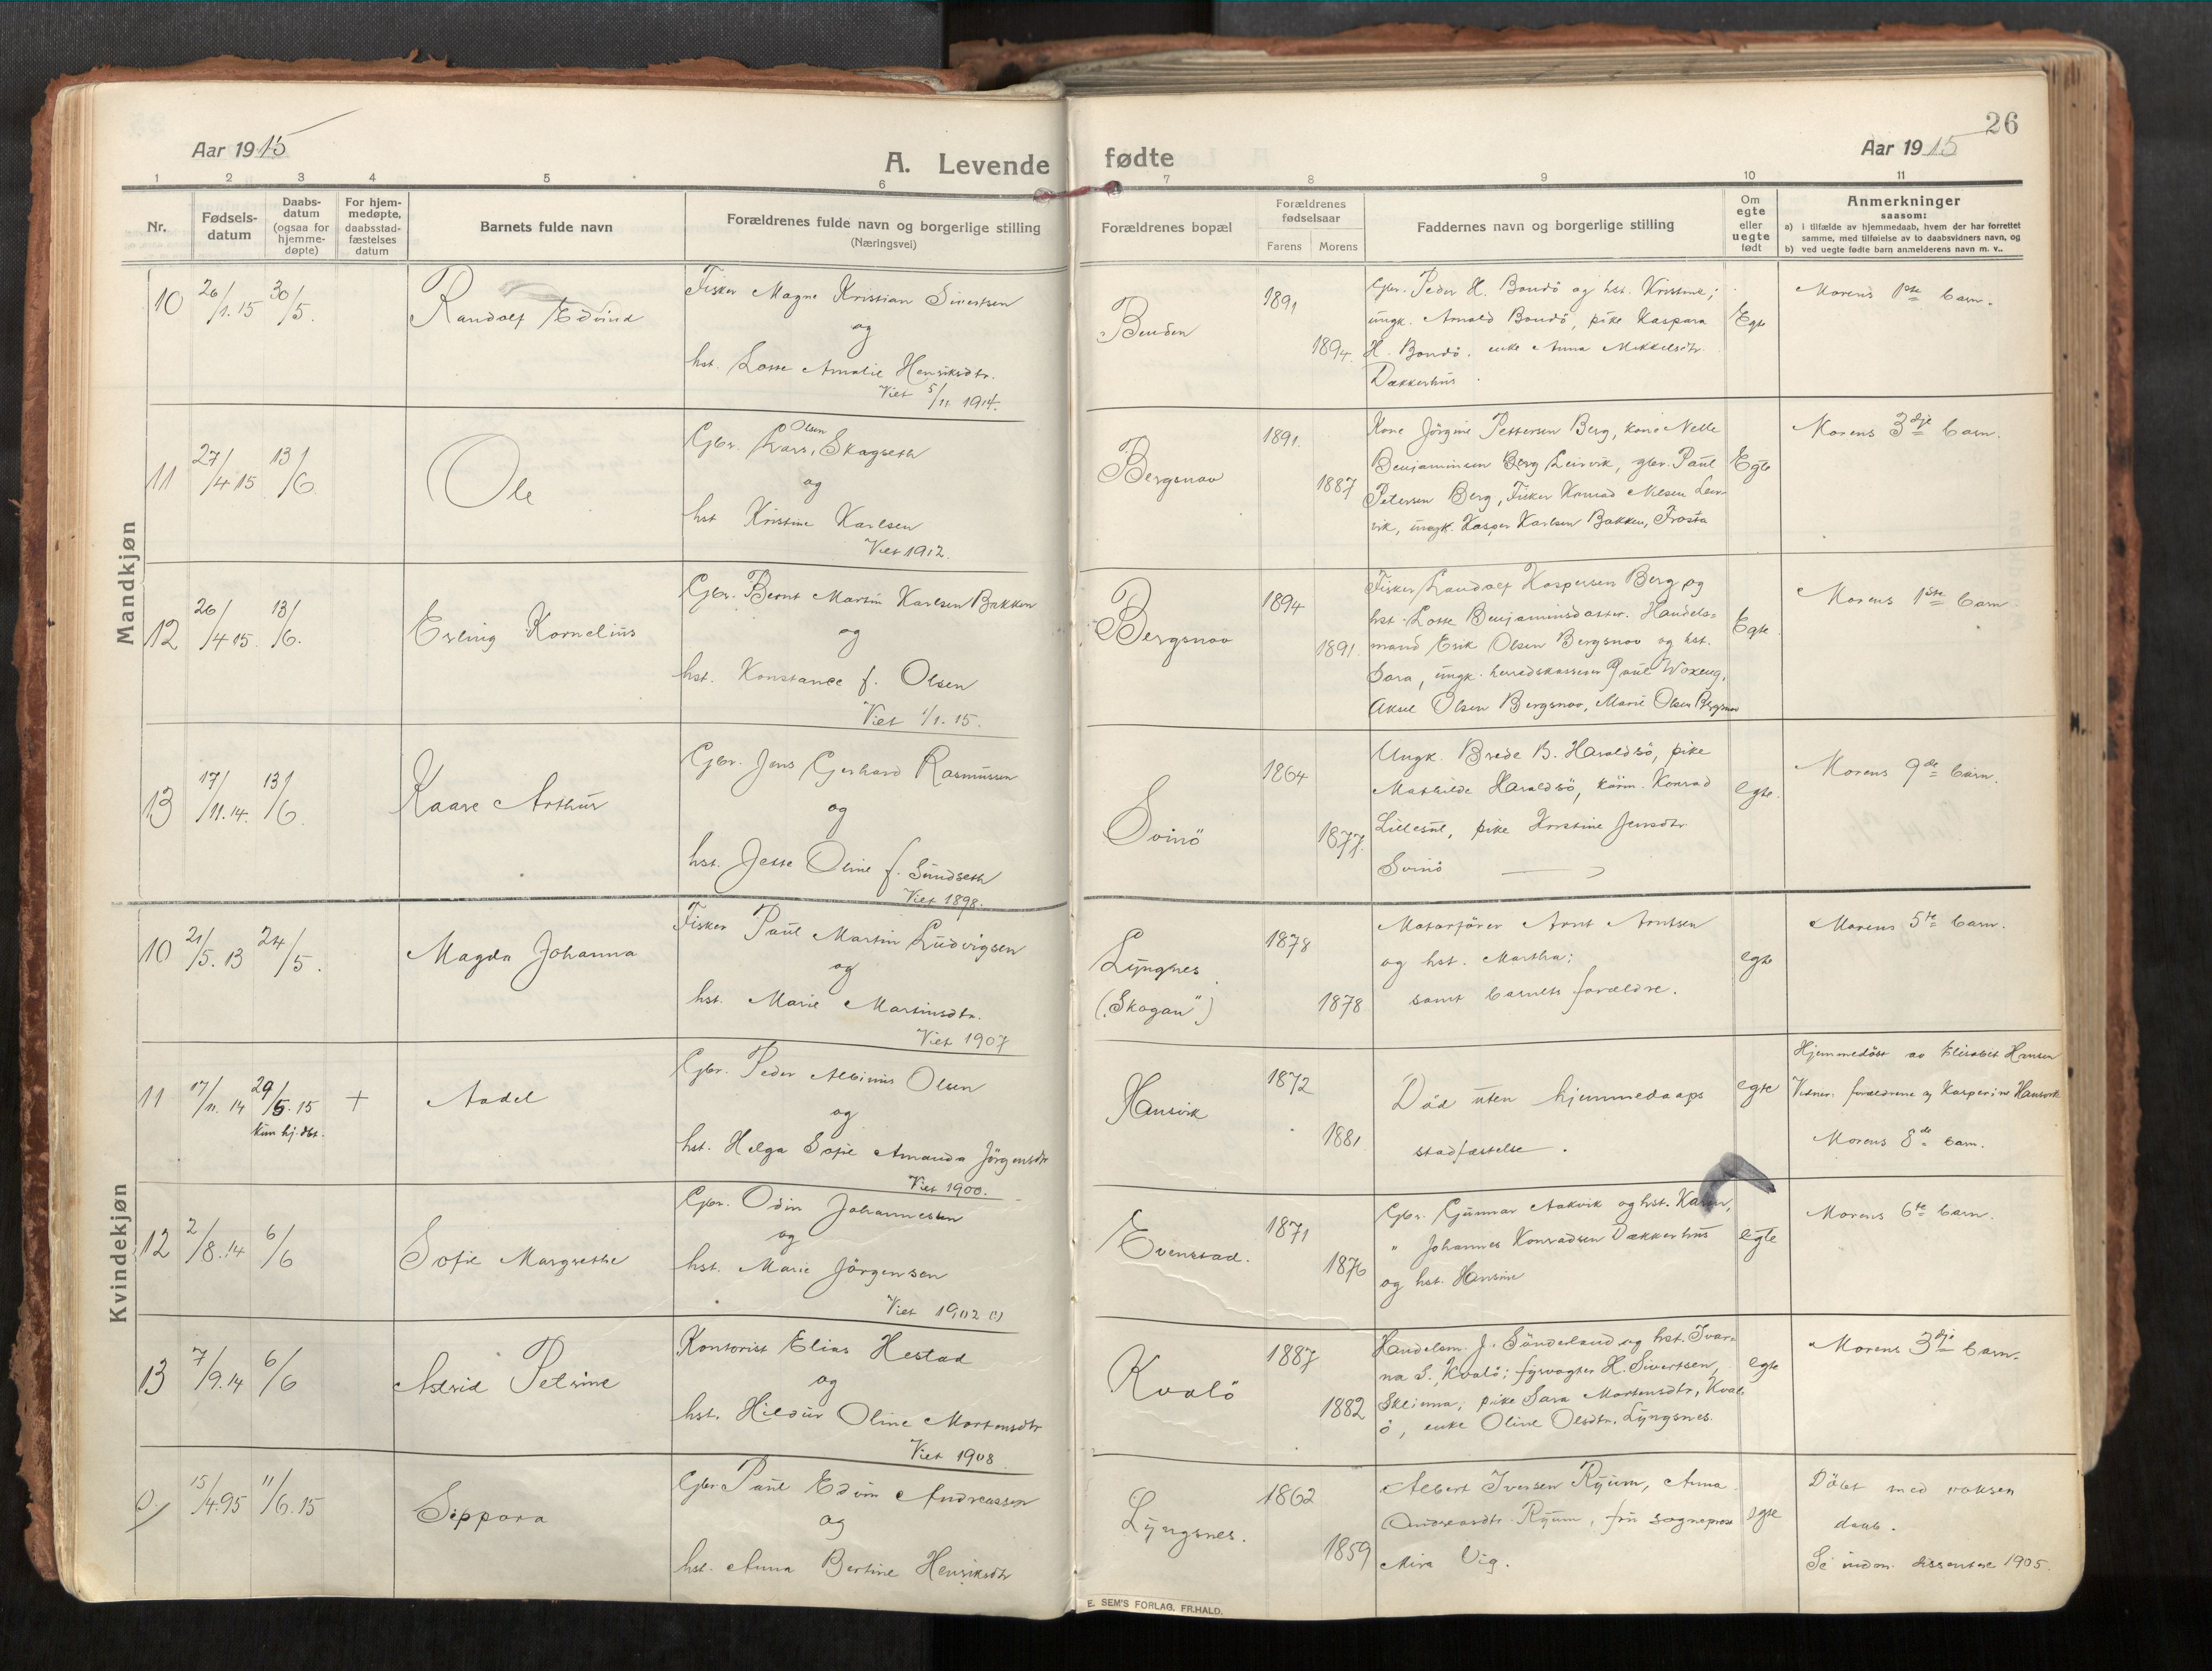 26
Aar 1915
A. Levende
fødte
Aar 1915
1 2 3 4 5 6 7 8 9 10 11
Nr.
Fødsels-
datum
Daabs-
datum
(ogsaa for
hjemme-
døpte)
For hjem-
medøpte,
daabsstad-
fæstelses
datum
Barnets fulde navn
Forældrenes fulde navn og borgerlige stilling
(Næringsvei)
Forældrenes bopæl
Forældrenes
fødselsaar
Farens Morens
Faddernes navn og borgerlige stilling
Om
egte
eller
uegte
født
Anmerkninger
saasom:
a) i tilfælde av hjemmedaab, hvem der har forrettet
samme, med tilføielse av to daabsvidners navn, og
b) ved uegte fødte barn anmelderens navn m. v..
Mandkjøn
10
26/1.15
30/5.
Randolf Edvind
Fisker Magne Kristian Sivertsen
og
hst. Lotte Amalie Henriksdtr.
Viet 5/11 1914.
1891
1894.
Gbr. Peder H. Bondö og hst. Kristine;
ungk. Arnold Bondö, pike Kaspara
H. Bondö, enke Anna Mikkelsdtr.
Dækkerhus
Egte
Morens 1ste barn.
11
27/4 15
13/6
Ole
Gbr. Lars Olsen Skagseth
og
hst Kristine Karlsen
Viet 1912.
Bergsnov
1891.
1887
Kone Jörgine Pettersen Berg, kone Nelle
Benjaminsen Berg Leirvik, gbr. Paul
Petersen Berg, Fisker Konrad Nilsen Leir-
vik, ungk. Kasper Karlsen Bakken, Frosta
Egte
Morens 3dje barn.
12
26/4 15.
13/6.
Erling Kornelius
Gbr. Bernt Martin Karlsen Bakken
og
hst. Konstance f. Olsen
Viet 1/1. 15.
Bergsnov
1894
1891.
Fisker Randolf Kaspersen Berg og
hst. Lotte Benjaminsdatter. Handels-
mand Erik Olsen Bergsnov og hst.
Sara, ungk. herredskasserer Paul Woxeng,
Aksel Olsen Bergsnov, Marie Olsen Bergsnov
Egte
Morens 1ste barn
13
17/11.14.
13/6.
Kaare Arthur
Gbr. Jens Gerhard Rasmussen
og
hst. Jette Oline f. Sundseth
Viet 1898.
Svinö
1864
1877.
Ungk. Brede B. Haraldsö, pike
Mathilde Haraldsö, Konrad
pike Kristine Jensdtr
Svinö
egte.
Morens 9de barn.
Kvindekjøn
10
21/5. 13
24/5.
Magda Johanna
Fisker Paul Martin Ludvigsen
og
hst. Marie Martinsdtr.
Viet 1907
Lyngsnes
("Skogan")
1878
1878
Motorförer Arnt Arntsen
og hst. Martha;
samt barnets forældre.
egte
Morens 5te barn.
11
17/11. 14
29/5.15
kun hj. dbt.
+
Aadel
Gbr. Peder Albinus Olsen
og
hst. Helga Sofie Amanda Jörgensdtr
Viet 1900.
Hansvik
1872
1881
Död uten hjemmedaaps
stadfæstelse.
egte
Hjemmedöbt av Elisabet Hansen
Vidner: forældrene og Kasperine Hansvik
Morens 8de barn.
12
2/8.14
6/6
Sofie Margrethe
Gbr. Odin Johannessen
og
hst. Marie Jörgensen
Viet 1902 (?)
Evenstad.
1871
1876
Gbr. Gunnar Aakvik og hst. Karen,
" Johannes Konradsen Dækkerhus
og hst. Hansine
egte
Morens 6te barn.
13
7/9.14
6/6
Astrid Petrine
Kontorist Elias Hestad
og
hst. Hildur Oline Mortensdtr
Viet 1908
Kvalö
1887
1882
Handelsm. J. Sönderland og hst. Ivar-
na S. Kvalö; fyrvogter H. Sivertsen,
Sklinna; pike Sara Mortensdtr, Kval-
ö, enke Oline Olsdtr. Lyngsnes.
egte
Morens 3dje barn.
0.
15/4.95
11/6.15
Seppora
Gbr. Paul Edvin Andreassen
og
hst. Anna Bertine Henriksdtr
Lyngsnes.
1862
1859
Albert Iversen Ryum, Anna
Andreasdtr. Ryum, fru sogneprest
Mira Vig.
egte
Döbt med voksen
daab.
Se indm. dissentere 1905.
E. SEM'S FORLAG, FR.HALD.